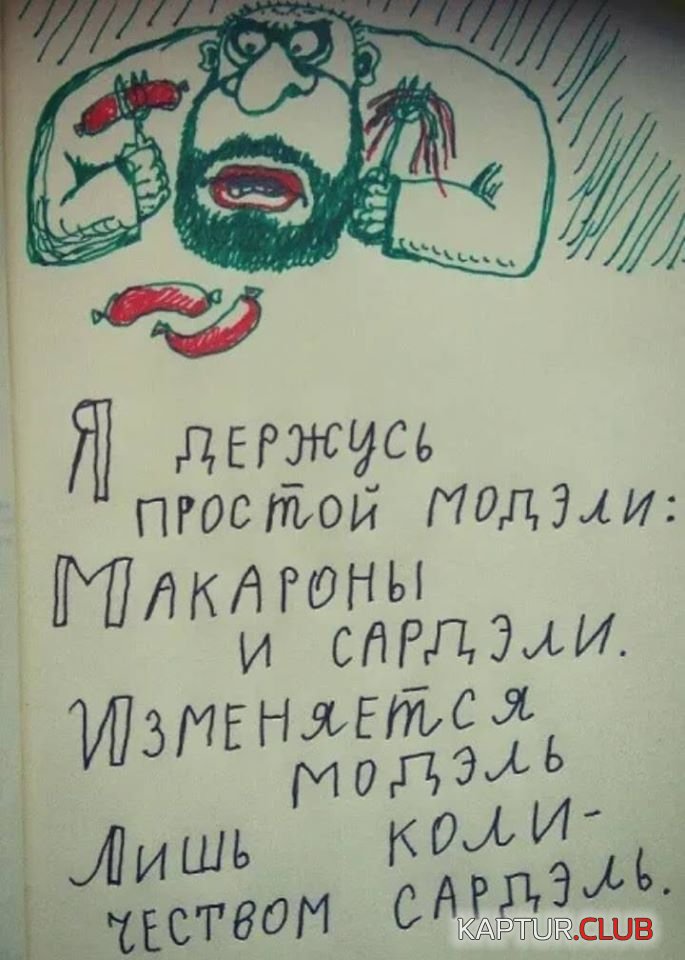 Я держусь
простой модэли:
Макароны
и сардэли.
Изменяется
модэль
Лишь коли-
чеством сардэль.
KAPTUR.CLUB